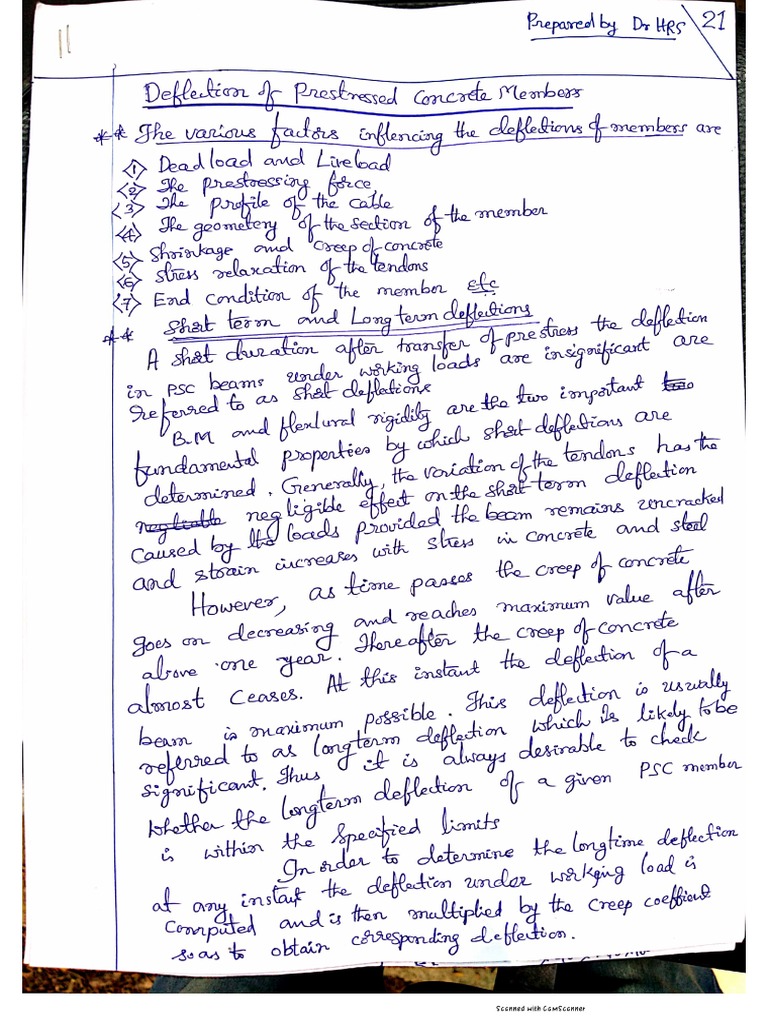 Prepared by Dr HRS 21
11
Deflection of Prestressed Concrete Members
** The various factors inflencing the deflections of members are
<1> Dead load and Live load
<2> The prestressing force
<3> The profile of the cable
<4> The geometery of the section of the member
<5> Shrinkage and Creep of concrete
<6> Stress relaxation of the tendons
<7> End condition of the member etc
** Short term and Long term deflections
A short duration after transfer of prestress the deflection
in PSC beams under working loads are insignificant are
referred to as short deflections
B.M and flexural rigidity are the two important
fundamental properties by which short deflections are
determined. Generally, the variation of the tendons has the
negligible effect on the short term deflection
caused by the loads provided the beam remains uncracked
and strain increases with stress in concrete and steel
However, as time passes the creep of concrete
goes on decreasing and reaches maximum value after
above one year. Thereafter the creep of concrete
almost ceases. At this instant the deflection of a
beam is maximum possible. This deflection is usually
referred to as longterm deflection which is likely to be
significant. Thus it is always desirable to check
whether the longterm deflection of a given PSC member
is within the specified limits
In order to determine the longtime deflection
at any instant the deflection under workging load is
computed and is then multiplied by the creep coeffient
so as to obtain corresponding deflection.
Scanned with CamScanner